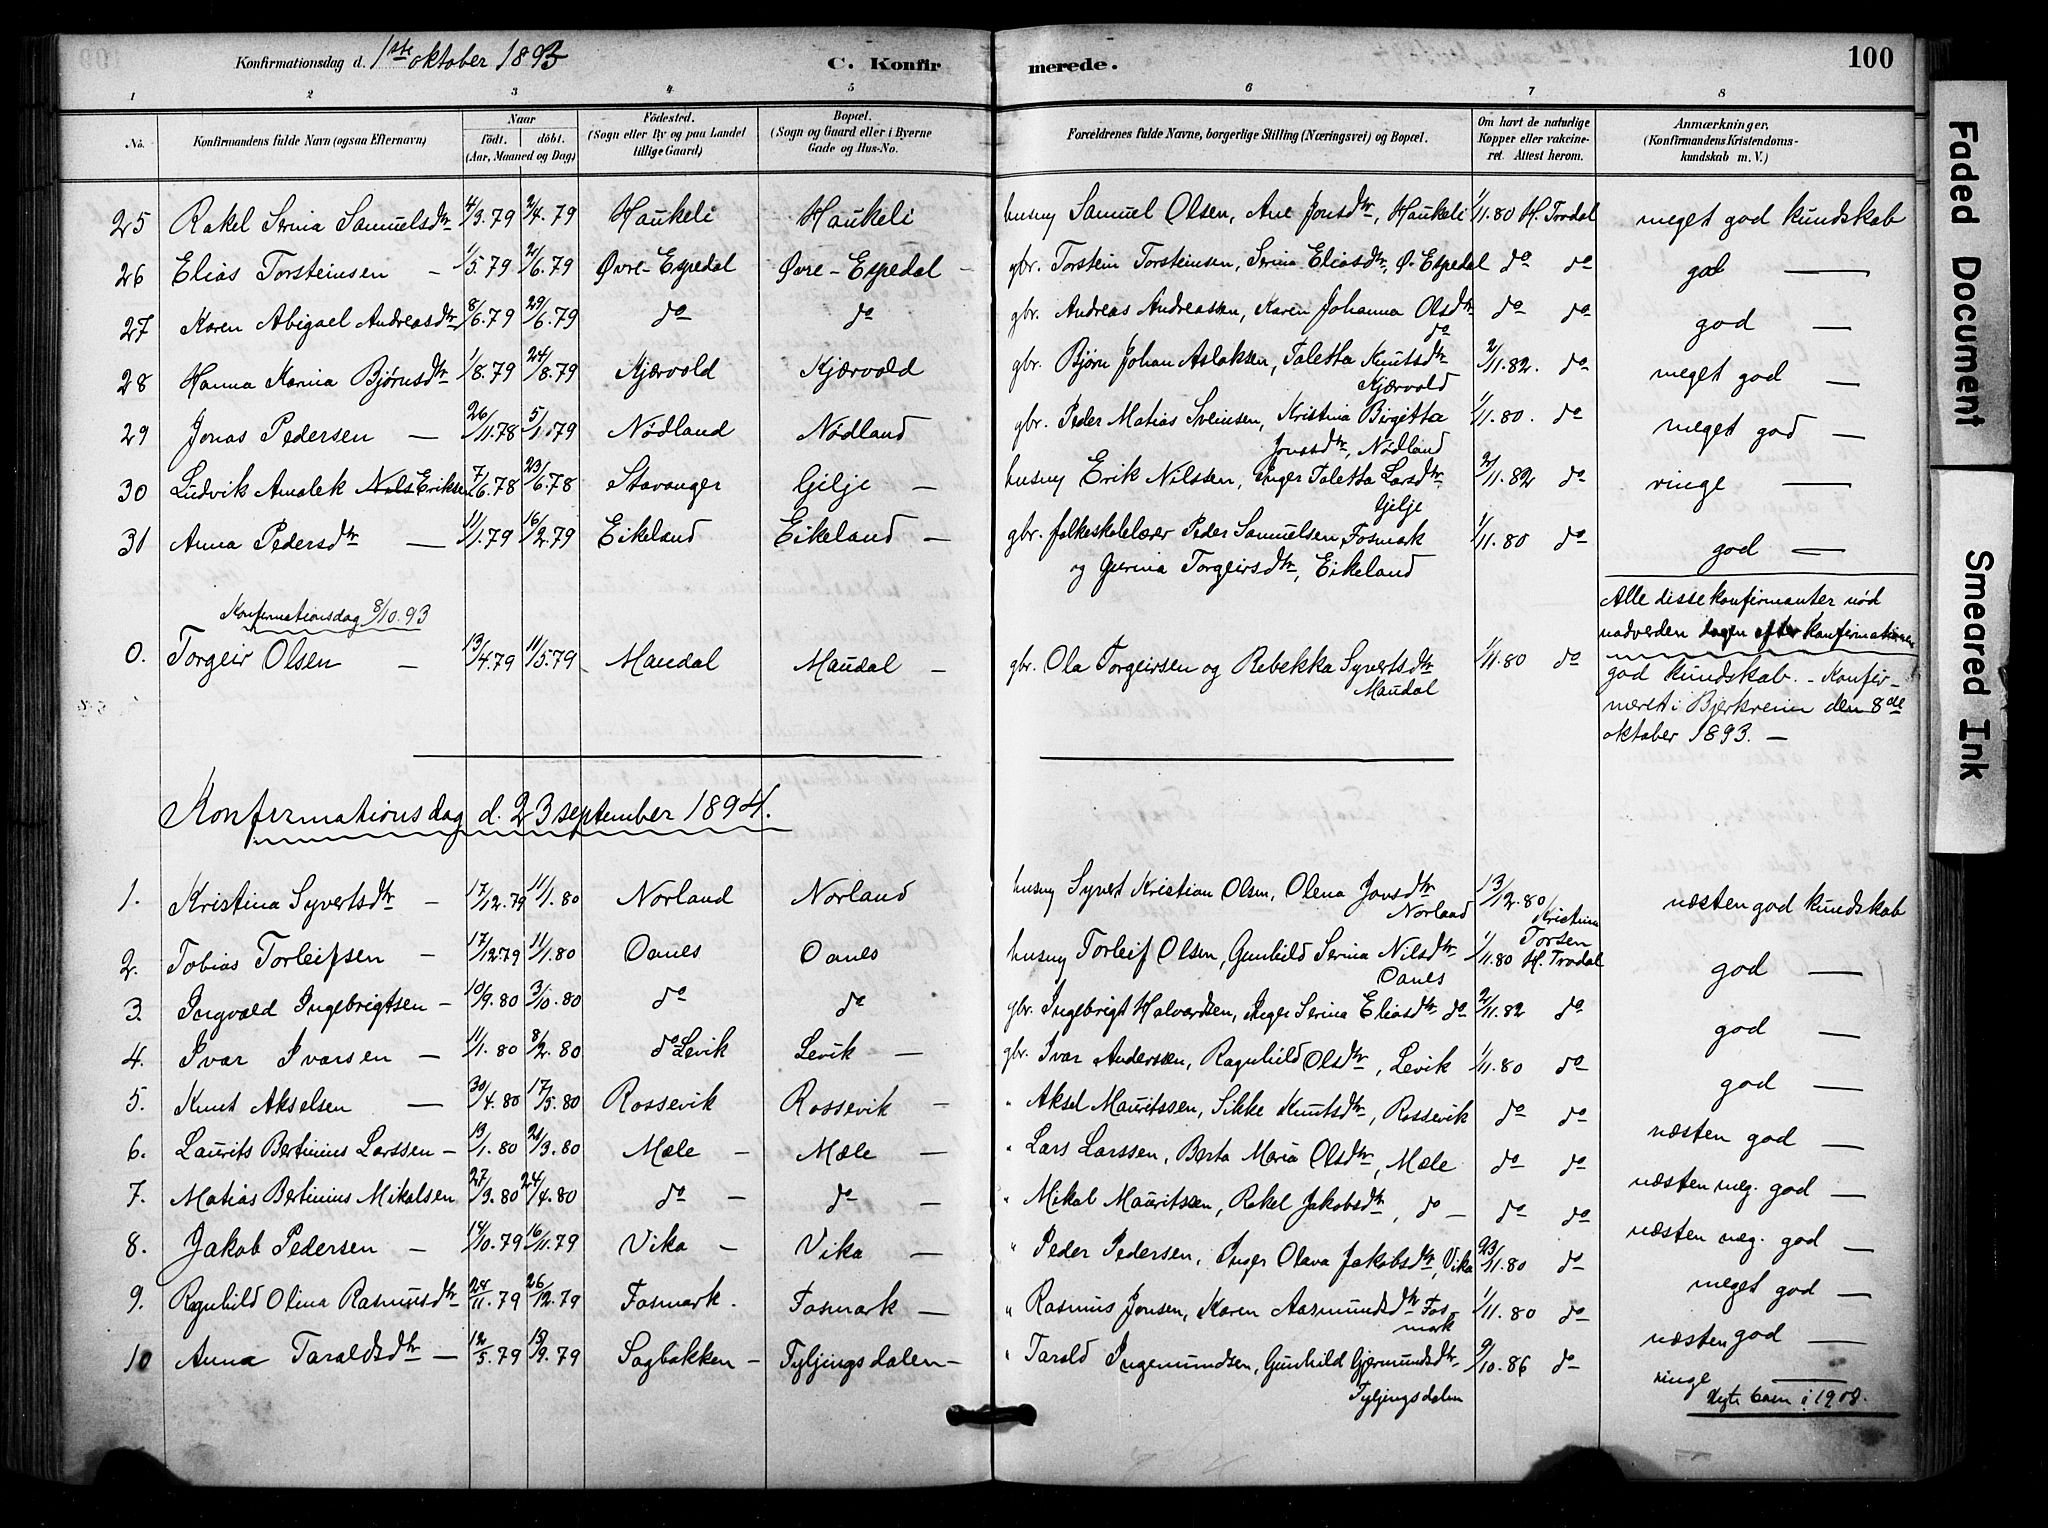 Konfirmationsdag d. 1ste oktober 1893
C. Konfirmerede.
100
1 2 3 4 5 6 7 8
No. Konfirmandens fulde Navn (ogsaa Efternavn) Naar født. døbt. (Aar, Maaned og Dag) Fødested. (Sogn eller By og paa Landet tillige Gaard) Bopæl. (Sogn og Gaard eller i Byerne Gade og Hus-No. Forældrenes fulde Navne, borgerlige Stilling (Næringsvei) og Bopæl. Om havt de naturlige Kopper eller vakcineret. Attest herom. Anmærkninger. (Konfirmandens Kristendomskundskab m. V.)
25 Rakel Serina Samuelsdtr 4/3.79 2/4.79 Haukeli Haukeli husmg Samuel Olsen, Ane Jonsdtr, Haukeli 1/11.80 H. Trodal meget god kundskab
26 Elias Torsteinsen — 1/5.79 2/6.79 Øvre-Espedal Øvre-Espedal — gbr. Torstein Torsteinsen, Serina Eliasdtr, Ø. Espedal do do god —
27 Karen Abigael Andreasdtr 8/6.79 29/6.79 do do gbr. Andreas Andreassen, Karen Johanna Olsdtr do do do god —
28 Hanna Karina Bjørnsdtr 1/8.79 24/8.79 Kjærvold Kjærvold gbr. Bjørn Johan Aslaksen, Taletta Knutsdtr Kjærvold 2/11.82. do meget god —
29 Jonas Pedersen — 26/11.78 5/1.79 Nødland Nødland gbr. Peder Matias Sveinsen, Kristina Birgitta Jonsdtr, Nødland 1/11.80. do meget god —
30 Ludvik Amalek Nils Eriksen 7/6.78 23/6.78 Stavanger Gilje — husmg Erik Nilssen, Inger Taletta Larsdtr Gilje 2/11.82 do ringe —
31 Anna Pedersdtr — 11/1.79 16/2.79 Eikeland Eikeland — gbr. folkeskolelærer Peder Samuelsen, Fosmark og Gurina Torgeirsdtr, Eikeland 1/11.80 do god —
Alle disse konfirmanter nød
nadverden dagen efter konfirmationen
Konfirmationsdag 8/10.93
0. Torgeir Olsen — 13/4.79 11/5.79 Maudal Maudal — gbr. Ola Torgeirsen og Rebekka Syvertsdtr Maudal 1/11.80 do god kundskab. - Konfirmeret i Bjerkreim den 8de oktober 1893. —
Konfirmationsdag d. 23 september 1894.
1. Kristina Syvertsdtr — 17/12.79 11/1.80 Norland Norland husmg Syvert Kristian Olsen, Olena Jonsdtr Norland 13/12.80 Kristina Torsen næsten god kundskab
2. Tobias Torleifsen — 17/12.79 11/1.80 Oanes Oanes husmg Torleif Olsen, Gunhild Serina Nilsdtr Oanes 1/11.80 H. Trodal god —
3. Ingvald Ingebrigtsen — 10/9.80 3/10.80 do do gbr. Ingebrigt Halvardsen, Inger Serina Eliasdtr do 2/11.82 do god —
4. Ivar Ivarsen — 11/1.80 8/2.80 do Levik Levik — gbr. Ivar Anderssen, Ragnhild Olsdtr, Levik 1/11.80 do god —
5. Knut Akselsen — 30/4.80 17/5.80 Rossevik Rossevik — " Aksel Mauritssen, Sikke Knutsdtr, Rossevik do do næsten god —
6. Laurits Bertinius Larssen — 13/1.80 21/3.80 Mæle — Mæle — " Lars Larssen, Berta Maria Olsdtr, Mæle do do næsten meg. god —
7. Matias Bertinius Mikalsen 27/3.80 24/4.80 do — do — " Mikal Mauritssen, Rakel Jakobsdtr, do — do do næsten meg. god —
8. Jakob Pedersen — 14/10.79 16/11.79 Vika — Vika — " Peder Pedersen, Inger Olava Jakobsdtr, Vika 23/11.80 do meget god —
9. Ragnhild Olina Rasmusdtr 24/11.79 26/12.79 Fosmark. Fosmark — " Rasmus Jonsen, Karen Aasmundsdtr Fosmark 1/11.80 do næsten god —
10 Anna Taraldsdtr — 12/5.79 13/9.79 Sagbakken — Tyljingsdalen — " Tarald Ingemundsen, Gunhild Gjermundsdtr Tyljingsdalen 9/10.86 do ringe —
i 1908.
Faded Document
Smeared Ink